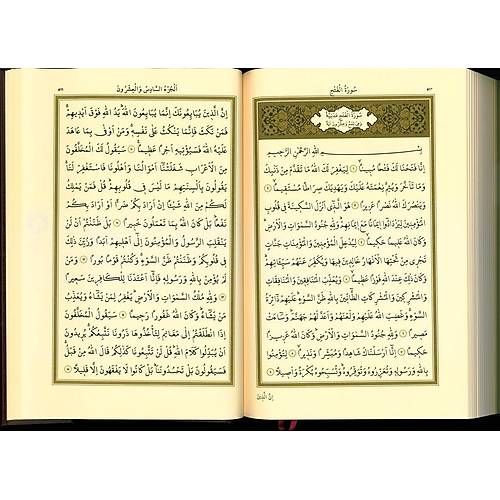 سُورَةُ الْفَتْحِ
سُورَةُ الْفَتْحِ مَدَنِيَّةٌ
بِسْمِ اللّٰهِ الرَّحْمٰنِ الرَّحِيمِ
اِنَّا فَتَحْنَا لَكَ فَتْحًا مُبِينًا لِيَغْفِرَ لَكَ اللّٰهُ مَا تَقَدَّمَ مِنْ ذَنْبِكَ
وَمَا تَاَخَّرَ وَيُتِمَّ نِعْمَتَهُ عَلَيْكَ وَيَهْدِيَكَ صِرَاطًا مُسْتَقِيمًا
وَيَنْصُرَكَ اللّٰهُ نَصْرًا عَزِيزًا هُوَ الَّذِي اَنْزَلَ السَّكِينَةَ فِي قُلُوبِ
الْمُؤْمِنِينَ لِيَزْدَادُوا اِيمَانًا مَعَ اِيمَانِهِمْ وَلِلّٰهِ جُنُودُ السَّمٰوَاتِ وَالْاَرْضِ
وَكَانَ اللّٰهُ عَلِيمًا حَكِيمًا لِيُدْخِلَ الْمُؤْمِنِينَ وَالْمُؤْمِنَاتِ جَنَّاتٍ
تَجْرِي مِنْ تَحْتِهَا الْاَنْهَارُ خَالِدِينَ فِيهَا وَيُكَفِّرَ عَنْهُمْ سَيِّـَٔاتِهِمْ
وَكَانَ ذٰلِكَ عِنْدَ اللّٰهِ فَوْزًا عَظِيمًا وَيُعَذِّبَ الْمُنَافِقِينَ وَالْمُنَافِقَاتِ
وَالْمُشْرِكِينَ وَالْمُشْرِكَاتِ الظَّانِّينَ بِاللّٰهِ ظَنَّ السَّوْءِ عَلَيْهِمْ دَائِرَةُ
السَّوْءِ وَغَضِبَ اللّٰهُ عَلَيْهِمْ وَلَعَنَهُمْ وَاَعَدَّ لَهُمْ جَهَنَّمَ وَسَاءَتْ
مَصِيرًا وَلِلّٰهِ جُنُودُ السَّمٰوَاتِ وَالْاَرْضِ وَكَانَ اللّٰهُ عَزِيزًا
حَكِيمًا اِنَّا اَرْسَلْنَاكَ شَاهِدًا وَمُبَشِّرًا وَنَذِيرًا لِتُؤْمِنُوا
بِاللّٰهِ وَرَسُولِهِ وَتُعَزِّرُوهُ وَتُوَقِّرُوهُ وَتُسَبِّحُوهُ بُكْرَةً وَاَصِيلًا
اِنَّ الَّذِينَ
اَلْجُزْءُ السَّادِسُ وَالْعِشْرُونَ
اِنَّ الَّذِينَ يُبَايِعُونَكَ اِنَّمَا يُبَايِعُونَ اللّٰهَ يَدُ اللّٰهِ فَوْقَ اَيْدِيهِمْ
فَمَنْ نَكَثَ فَاِنَّمَا يَنْكُثُ عَلٰى نَفْسِهِ وَمَنْ اَوْفٰى بِمَا عَاهَدَ
عَلَيْهُ اللّٰهَ فَسَيُؤْتِيهِ اَجْرًا عَظِيمًا سَيَقُولُ لَكَ الْمُخَلَّفُونَ
مِنَ الْاَعْرَابِ شَغَلَتْنَا اَمْوَالُنَا وَاَهْلُونَا فَاسْتَغْفِرْ لَنَا
يَقُولُونَ بِاَلْسِنَتِهِمْ مَا لَيْسَ فِي قُلُوبِهِمْ قُلْ فَمَنْ يَمْلِكُ
لَكُمْ مِنَ اللّٰهِ شَيْـًٔا اِنْ اَرَادَ بِكُمْ ضَرًّا اَوْ اَرَادَ بِكُمْ
نَفْعًا بَلْ كَانَ اللّٰهُ بِمَا تَعْمَلُونَ خَبِيرًا بَلْ ظَنَنْتُمْ اَنْ لَنْ
يَنْقَلِبَ الرَّسُولُ وَالْمُؤْمِنُونَ اِلٰى اَهْلِيهِمْ اَبَدًا وَزُيِّنَ ذٰلِكَ
فِي قُلُوبِكُمْ وَظَنَنْتُمْ ظَنَّ السَّوْءِ وَكُنْتُمْ قَوْمًا بُورًا وَمَنْ
لَمْ يُؤْمِنْ بِاللّٰهِ وَرَسُولِهِ فَاِنَّا اَعْتَدْنَا لِلْكَافِرِينَ سَعِيرًا
وَلِلّٰهِ مُلْكُ السَّمٰوَاتِ وَالْاَرْضِ يَغْفِرُ لِمَنْ يَشَاءُ وَيُعَذِّبُ
مَنْ يَشَاءُ وَكَانَ اللّٰهُ غَفُورًا رَحِيمًا سَيَقُولُ الْمُخَلَّفُونَ
اِذَا انْطَلَقْتُمْ اِلٰى مَغَانِمَ لِتَأْخُذُوهَا ذَرُونَا نَتَّبِعْكُمْ يُرِيدُونَ
اَنْ يُبَدِّلُوا كَلَامَ اللّٰهِ قُلْ لَنْ تَتَّبِعُونَا كَذٰلِكُمْ قَالَ اللّٰهُ مِنْ قَبْلُ
فَسَيَقُولُونَ بَلْ تَحْسُدُونَنَا بَلْ كَانُوا لَا يَفْقَهُونَ اِلَّا قَلِيلًا